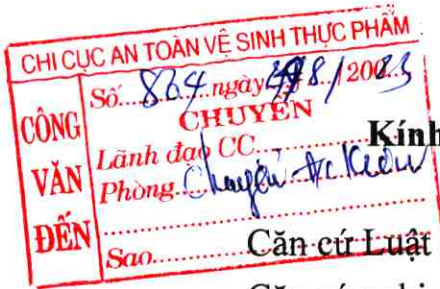 CHI CỤC AN TOÀN VỆ SINH THỰC PHẨM
CÔNG VĂN ĐẾN
Số...864...ngày.../8/2023
CHUYỂN
Lãnh đạo CC
Phòng. Chuyển
Sao
Kính
Căn cứ Luật